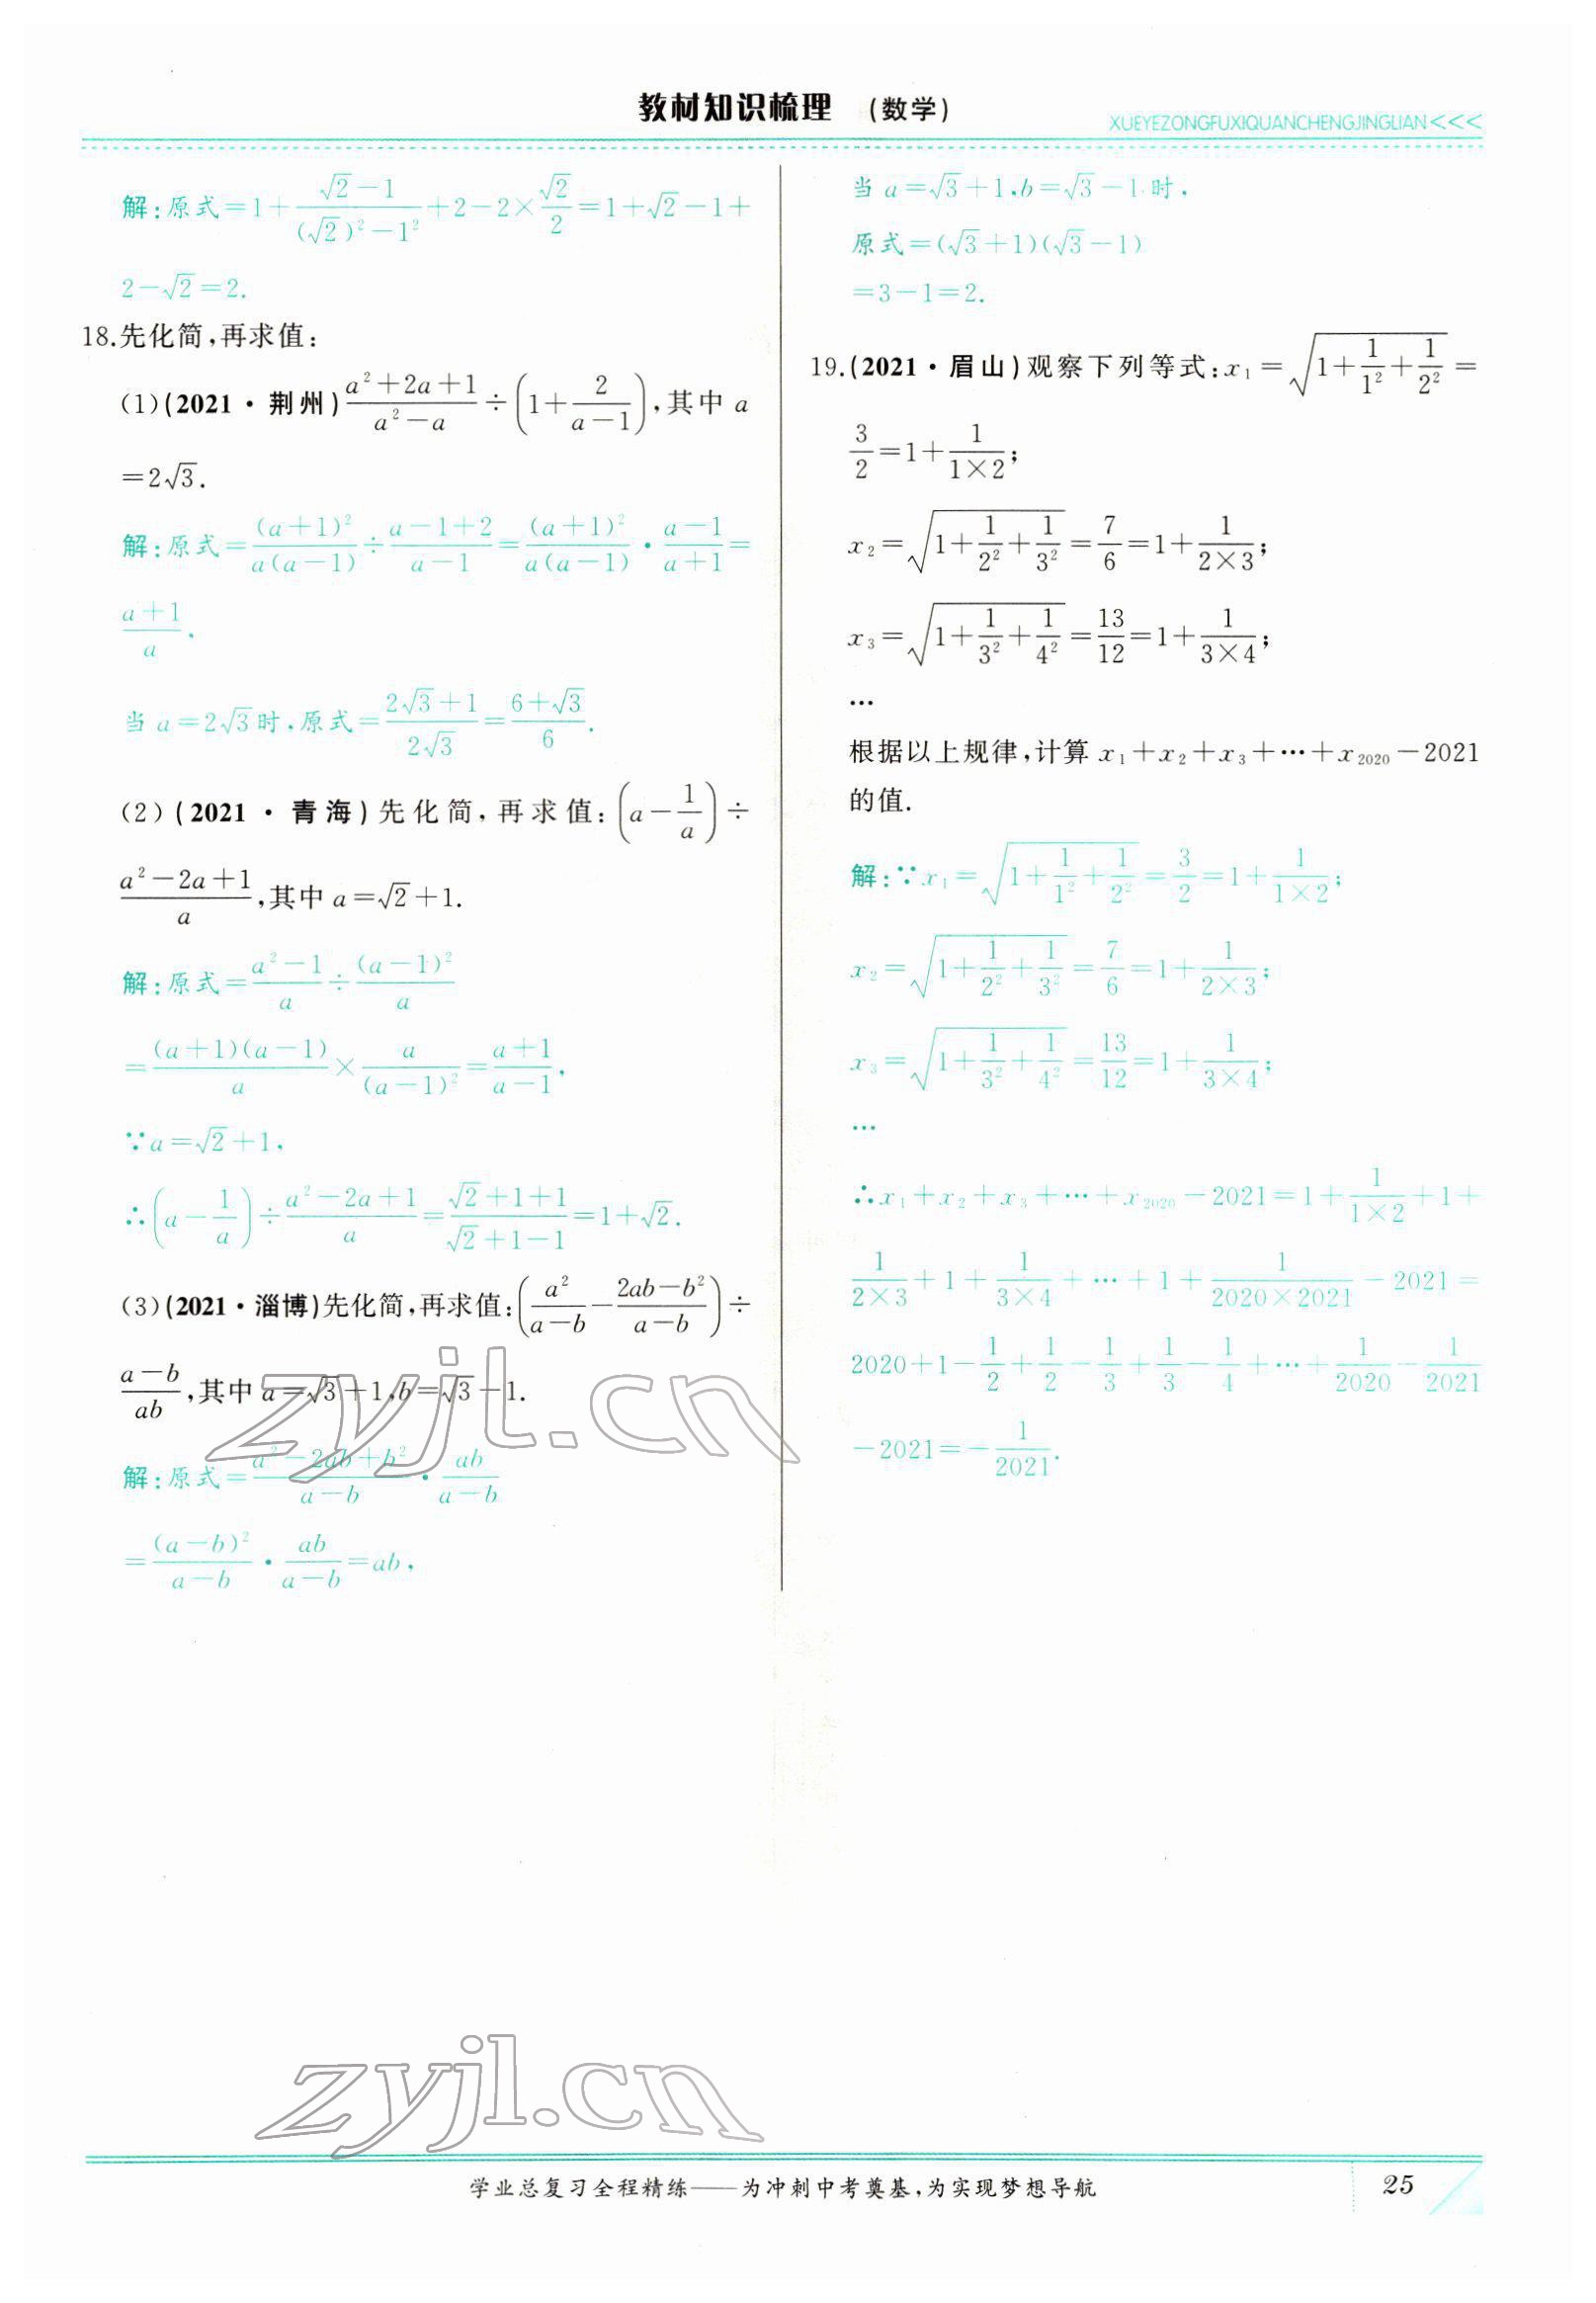 教材知识梳理 (数学)
XUEYEZONGFUXIQUANCHENGJINGLIAN<<<
解:原式=1+(√2-1)/((√2)²-1²)+2-2×√2/2=1+√2-1+
2-√2=2.
18.先化简,再求值:
(1)(2021·荆州)(a²+2a+1)/(a²-a)÷(1+2/(a-1)),其中 a
=2√3.
解:原式=(a+1)²/(a(a-1))÷(a-1+2)/(a-1)=(a+1)²/(a(a-1))·(a-1)/(a+1)=
(a+1)/a.
当 a=2√3时,原式=(2√3+1)/(2√3)=(6+√3)/6.
(2)(2021·青海)先化简,再求值:(a-1/a)÷
(a²-2a+1)/a,其中 a=√2+1.
解:原式=(a²-1)/a÷(a-1)²/a
=(a+1)(a-1)/a×a/(a-1)²=(a+1)/(a-1),
∵a=√2+1,
∴(a-1/a)÷(a²-2a+1)/a=(√2+1+1)/(√2+1-1)=1+√2.
(3)(2021·淄博)先化简,再求值:(a²/(a-b)-(2ab-b²)/(a-b))÷
(a-b)/ab,其中 a=√3+1,b=√3-1.
解:原式=(a²-2ab+b²)/(a-b)·ab/(a-b)
=(a-b)²/(a-b)·ab/(a-b)=ab,
当 a=√3+1,b=√3-1时,
原式=(√3+1)(√3-1)
=3-1=2.
19.(2021·眉山)观察下列等式:x₁=√(1+1/1²+1/2²)=
3/2=1+1/(1×2);
x₂=√(1+1/2²+1/3²)=7/6=1+1/(2×3);
x₃=√(1+1/3²+1/4²)=13/12=1+1/(3×4);
…
根据以上规律,计算 x₁+x₂+x₃+…+x₂₀₂₀-2021
的值.
解:∵x₁=√(1+1/1²+1/2²)=3/2=1+1/(1×2);
x₂=√(1+1/2²+1/3²)=7/6=1+1/(2×3);
x₃=√(1+1/3²+1/4²)=13/12=1+1/(3×4);
…
∴x₁+x₂+x₃+…+x₂₀₂₀-2021=1+1/(1×2)+1+
1/(2×3)+1+1/(3×4)+…+1+1/(2020×2021)-2021=
2020+1-1/2+1/2-1/3+1/3-1/4+…+1/2020-1/2021
-2021=-1/2021.
zyjl.cn
zyjl.cn
学业总复习全程精练——为冲刺中考奠基,为实现梦想导航
25